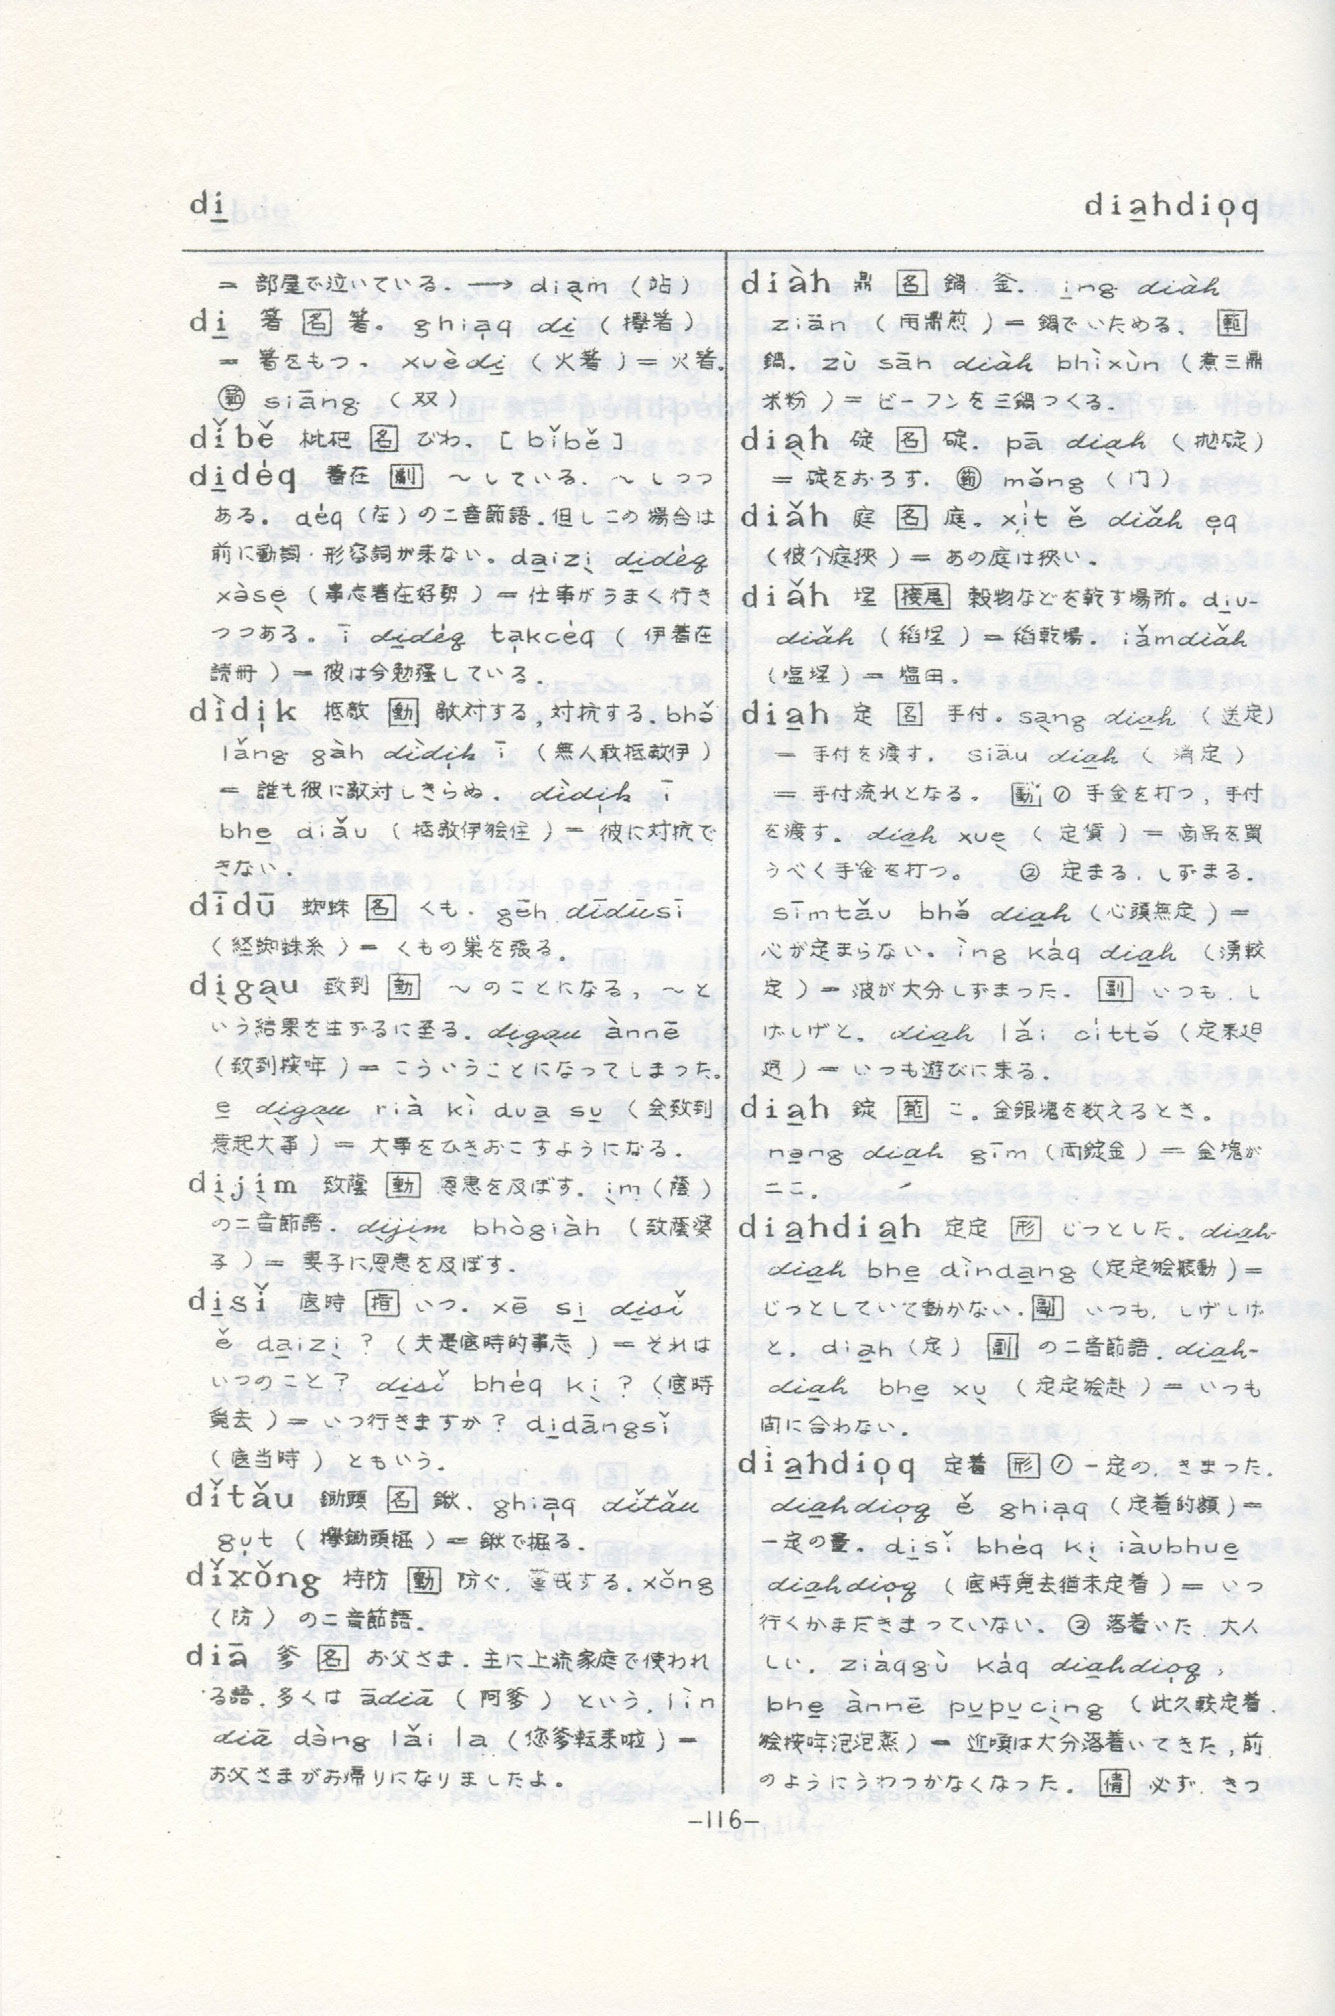 di̱
dia̱hdiọq
= 部屋で泣いている. → diạm (站)
di̱ 箸 [名] 箸. ghiạq di̱ (攑箸)
= 箸をもつ. xuèdi̱ (火箸) = 火箸.
㊥ siāng (双)
dǐbě 枇杷 [名] びわ. [bǐbě]
di̱dėq 著在 [副] 〜している. 〜しつつ
ある. dėq (在) の二音節語. 但しこの場合は
前に動詞・形容詞が来ない. da̱izị di̱dėq
xàsẹ (事志著在好勢) = 仕事がうまく行き
つつある. ī di̱dėq tạkcėq (伊著在
読冊) = 彼は今勉強している.
dìdịk 抵敵 [動] 敵対する, 対抗する. bhǒ
lǎng gàh dìdịk ī (無人敢抵敵伊)
= 誰も彼に敵対しきらぬ. dìdịk ī
bhe̱ diǎu (抵敵伊𣍐住) = 彼に対抗で
きない.
dīdū 蜘蛛 [名] くも. gēh dīdūsī
(経蜘蛛糸) = くもの巣を張る.
dịgạu 致到 [動] 〜のことになる, 〜と
いう結果を生ずるに至る. dịgạu ànnē
(致到按哖) = こういうことになってしまった.
e̱ dịgạu rià kì dua̱ su̱ (会致到
惹起大事) = 大事をひきおこすようになる.
dịjịm 致蔭 [動] 恩恵を及ぼす. ịm (蔭)
の二音節語. dịjịm bhògiàh (致蔭婆
子) = 妻子に恩恵を及ぼす.
di̱sǐ 底時 [指] いつ. xē si̱ di̱sǐ
ě da̱izị? (夫是底時的事志) = それは
いつのこと? di̱sǐ bhėq kị? (底時
覓去) = いつ行きますか? di̱dāngsǐ
(底当時) ともいう.
dǐtǎu 鋤頭 [名] 鍬. ghiạq dǐtǎu
gut (攑鋤頭掘) = 鍬で掘る.
dǐxǒng 持防 [動] 防ぐ, 警戒する. xǒng
(防) の二音節語.
diā 爹 [名] お父さま. 主に上流家庭で使われ
る語. 多くは ādiā (阿爹) という. lìn
diā dàng lǎi la (您爹転来啦) =
お父さまがお帰りになりましたよ.
diàh 鼎 [名] 鍋 釜. ịng diàh
ziān (用鼎煎) = 鍋でいためる. [範]
鍋. zù sāh diàh bhìxùn (煮三鼎
米粉) = ビーフンを三鍋つくる.
diạh 碇 [名] 碇. pā diạh (抛碇)
= 碇をおろす. ㊥ mǒng (门)
diǎh 庭 [名] 庭. xịt ě diǎh ẹq
(彼个庭狹) = あの庭は狭い.
diǎh 埕 [接尾] 穀物などを乾す場所. di̱u-
diǎh (稻埕) = 稲乾場. iǎmdiǎh
(塩埕) = 塩田.
dia̱h 定 [名] 手付. sạng dia̱h (送定)
= 手付を渡す. siāu dia̱h (消定)
= 手付流れとなる. [動] ① 手金を打つ, 手付
を渡す. dia̱h xuẹ (定貨) = 商品を買
うべく手金を打つ. ② 定まる, しずまる.
sīmtǎu bhǒ dia̱h (心頭無定) =
心が定まらない. ìng kȧq dia̱h (湧較
定) = 波が大分しずまった. [副] いつも, し
げしげと. dia̱h lǎi cíttǒ (定来𨑨
迌) = いつも遊びに来る.
dia̱h 錠 [範] こ. 金銀塊を数えるとき.
nạng dia̱h gīm (両錠金) = 金塊が
二こ.
dia̱hdia̱h 定定 [形] じっとした. dia̱h-
dia̱h bhe̱ dìnda̱ng (定定𣍐振動) =
じっとしていて動かない. [副] いつも, しげしげ
と. dia̱h (定) [副] の二音節語. dia̱h-
dia̱h bhe̱ xụ (定定𣍐赴) = いつも
間に合わない.
dia̱hdiọq 定着 [形] ① 一定の, きまった.
dia̱hdiọq ě ghiạq (定着的額) =
一定の量. di̱sǐ bhėq kị iàubhue̱
dia̱hdiọq (底時覓去猶未定着) = いつ
行くかまだきまっていない. ② 落着いた, 大人
しい. ziȧqgù kȧq dia̱hdiọq,
bhe̱ ànnē pu̱pu̱cịng (此久較定着,
𣍐按哖泡泡蒸) = 近頃は大分落着いてきた, 前
のようにうわつかなくなった. [情] 必ず, きっ
—116—